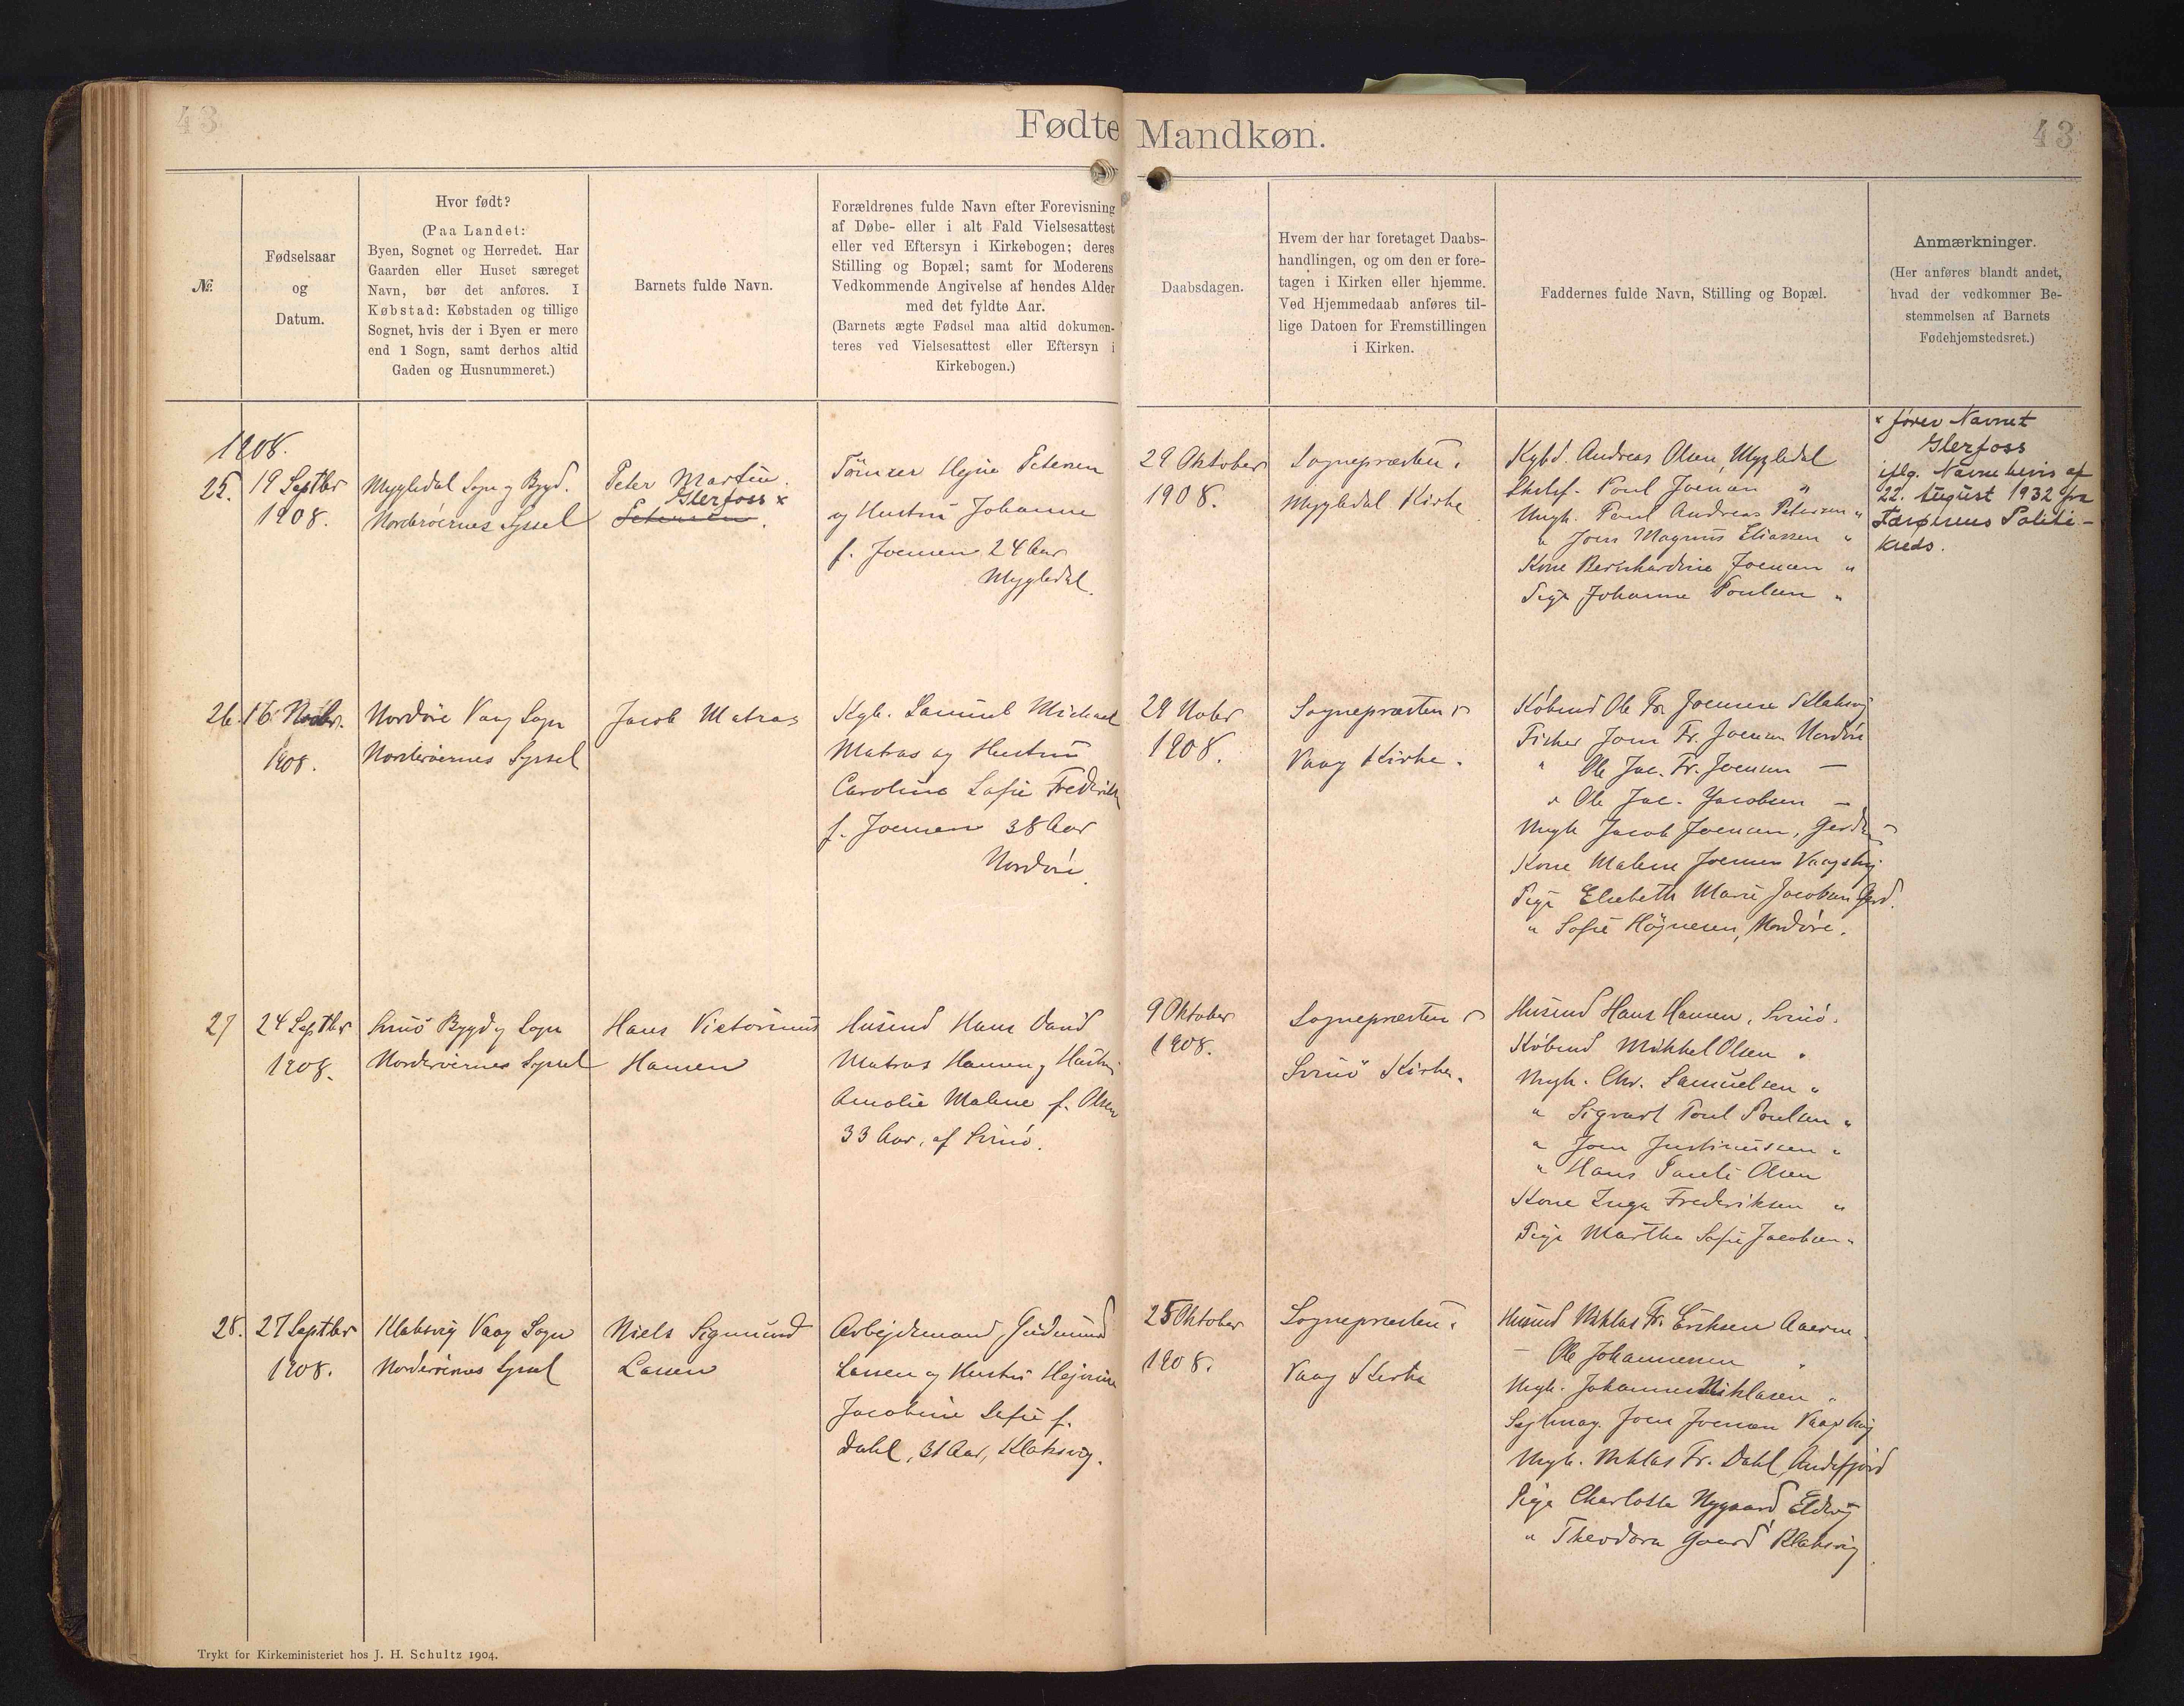 43
Fødte
Mandkøn.
43
№.
Fødselsaar
og
Datum.
Hvor født?
(Paa Landet:
Byen, Sognet og Herredet. Har
Gaarden eller Huset særeget
Navn, bør det anføres. I
Købstad: Købstaden og tillige
Sognet, hvis der i Byen er mere
end 1 Sogn, samt derhos altid
Gaden og Husnummeret.)
Barnets fulde Navn.
Forældrenes fulde Navn efter Forevisning
af Døbe- eller i alt Fald Vielsesattest
eller ved Eftersyn i Kirkebogen; deres
Stilling og Bopæl; samt for Moderens
Vedkommende Angivelse af hendes Alder
med det fyldte Aar.
(Barnets ægte Fødsel maa altid dokumen-
teres ved Vielsesattest eller Eftersyn i
Kirkebogen.)
Daabsdagen.
Hvem der har foretaget Daabs-
handlingen, og om den er fore-
tagen i Kirken eller hjemme.
Ved Hjemmedaab anføres til-
lige Datoen for Fremstillingen
i Kirken.
Faddernes fulde Navn, Stilling og Bopæl.
Anmærkninger.
(Her anføres blandt andet,
hvad der vedkommer Be-
stemmelsen af Barnets
Fødehjemstedsret.)
1908.
25.
19 Septbr
1908.
Mygledal Sogn og Bygd.
Norderøernes Syssel
Peter Martin
Glerfoss x
Petersen.
Tømrer Petersen
og Hustru Johanne
f. Joensen 24 Aar
Mygledal.
29 Oktober
1908.
Sognepræsten i
Mygledal Kirke
Kgbd. Andreas Olsen, Mygledal
Poul Joensen "
Ungk. Poul Andreas Petersen "
" Joen Magnus Eliassen "
Kone Bernhardine Joensen "
Pige Johanne Poulsen "
x fører Navnet
Glerfoss
iflg. Navnebevis af
22. August 1932 fra
Færøernes Politi-
kreds.
26.
16 Novbr.
1908.
Nordøre Vaag Sogn
Norderøernes Syssel
Jacob Matras
Kgb. Samuel Michael
Matras og Hustru
Caroline Sofie Frederikke
f. Joensen 38 Aar
Nordøre.
29 Novbr
1908.
Sognepræsten i
Vaag Kirke.
Købmd Ole Fr. Joensen Klaksvig
Fisker Joen Fr. Joensen Nordøre
" Ole Jac. Fr. Joensen —
" Ole Jac. Jacobsen —
Ungk Jacob Joensen,
Kone Malene Joensen
Pige Elsebeth Marie Jacobsen
" Sofie Høgnesen, Nordøre.
27
24 Septbr
1908.
Svinø Bygd og Sogn
Norderøernes Syssel
Hans Victorinus
Hansen
Husmd Hans David
Matras Hansen og Hustru
Amalie Malene f. Olsen
33 Aar, af Svinø.
9 Oktober
1908.
Sognepræsten i
Svinø Kirke.
Husmd Hans Hansen, Svinø.
Købmd Mikkel Olsen "
Ungk. Chr. Samuelsen "
" Sigvart Poul Poulsen "
" Joen Justinussen "
" Hans Pauli Olsen
Kone Inga Frederiksen "
Pige Martha Sofie Jacobsen "
28.
27 Septbr
1908.
Klaksvig Vaag Sogn
Norderøernes Syssel
Niels Sigmund
Lassen
Arbejdsmand Gudmund
Lassen og Hustru
Jacobine Sofie f.
Dahl, 31 Aar, Klaksvig.
25 Oktober
1908.
Sognepræsten i
Vaag Kirke
Husmd Niklas Fr. Eriksen
— Ole Johannesen "
Ungk. Johannes Niklasen "
Joen Joensen
Ungk. Niklas Fr. Dahl, Andefjord
Pige Charlotte Nygaard,
" Theodora Gaard Klaksvig
Trykt for Kirkeministeriet hos J. H. Schultz 1904.